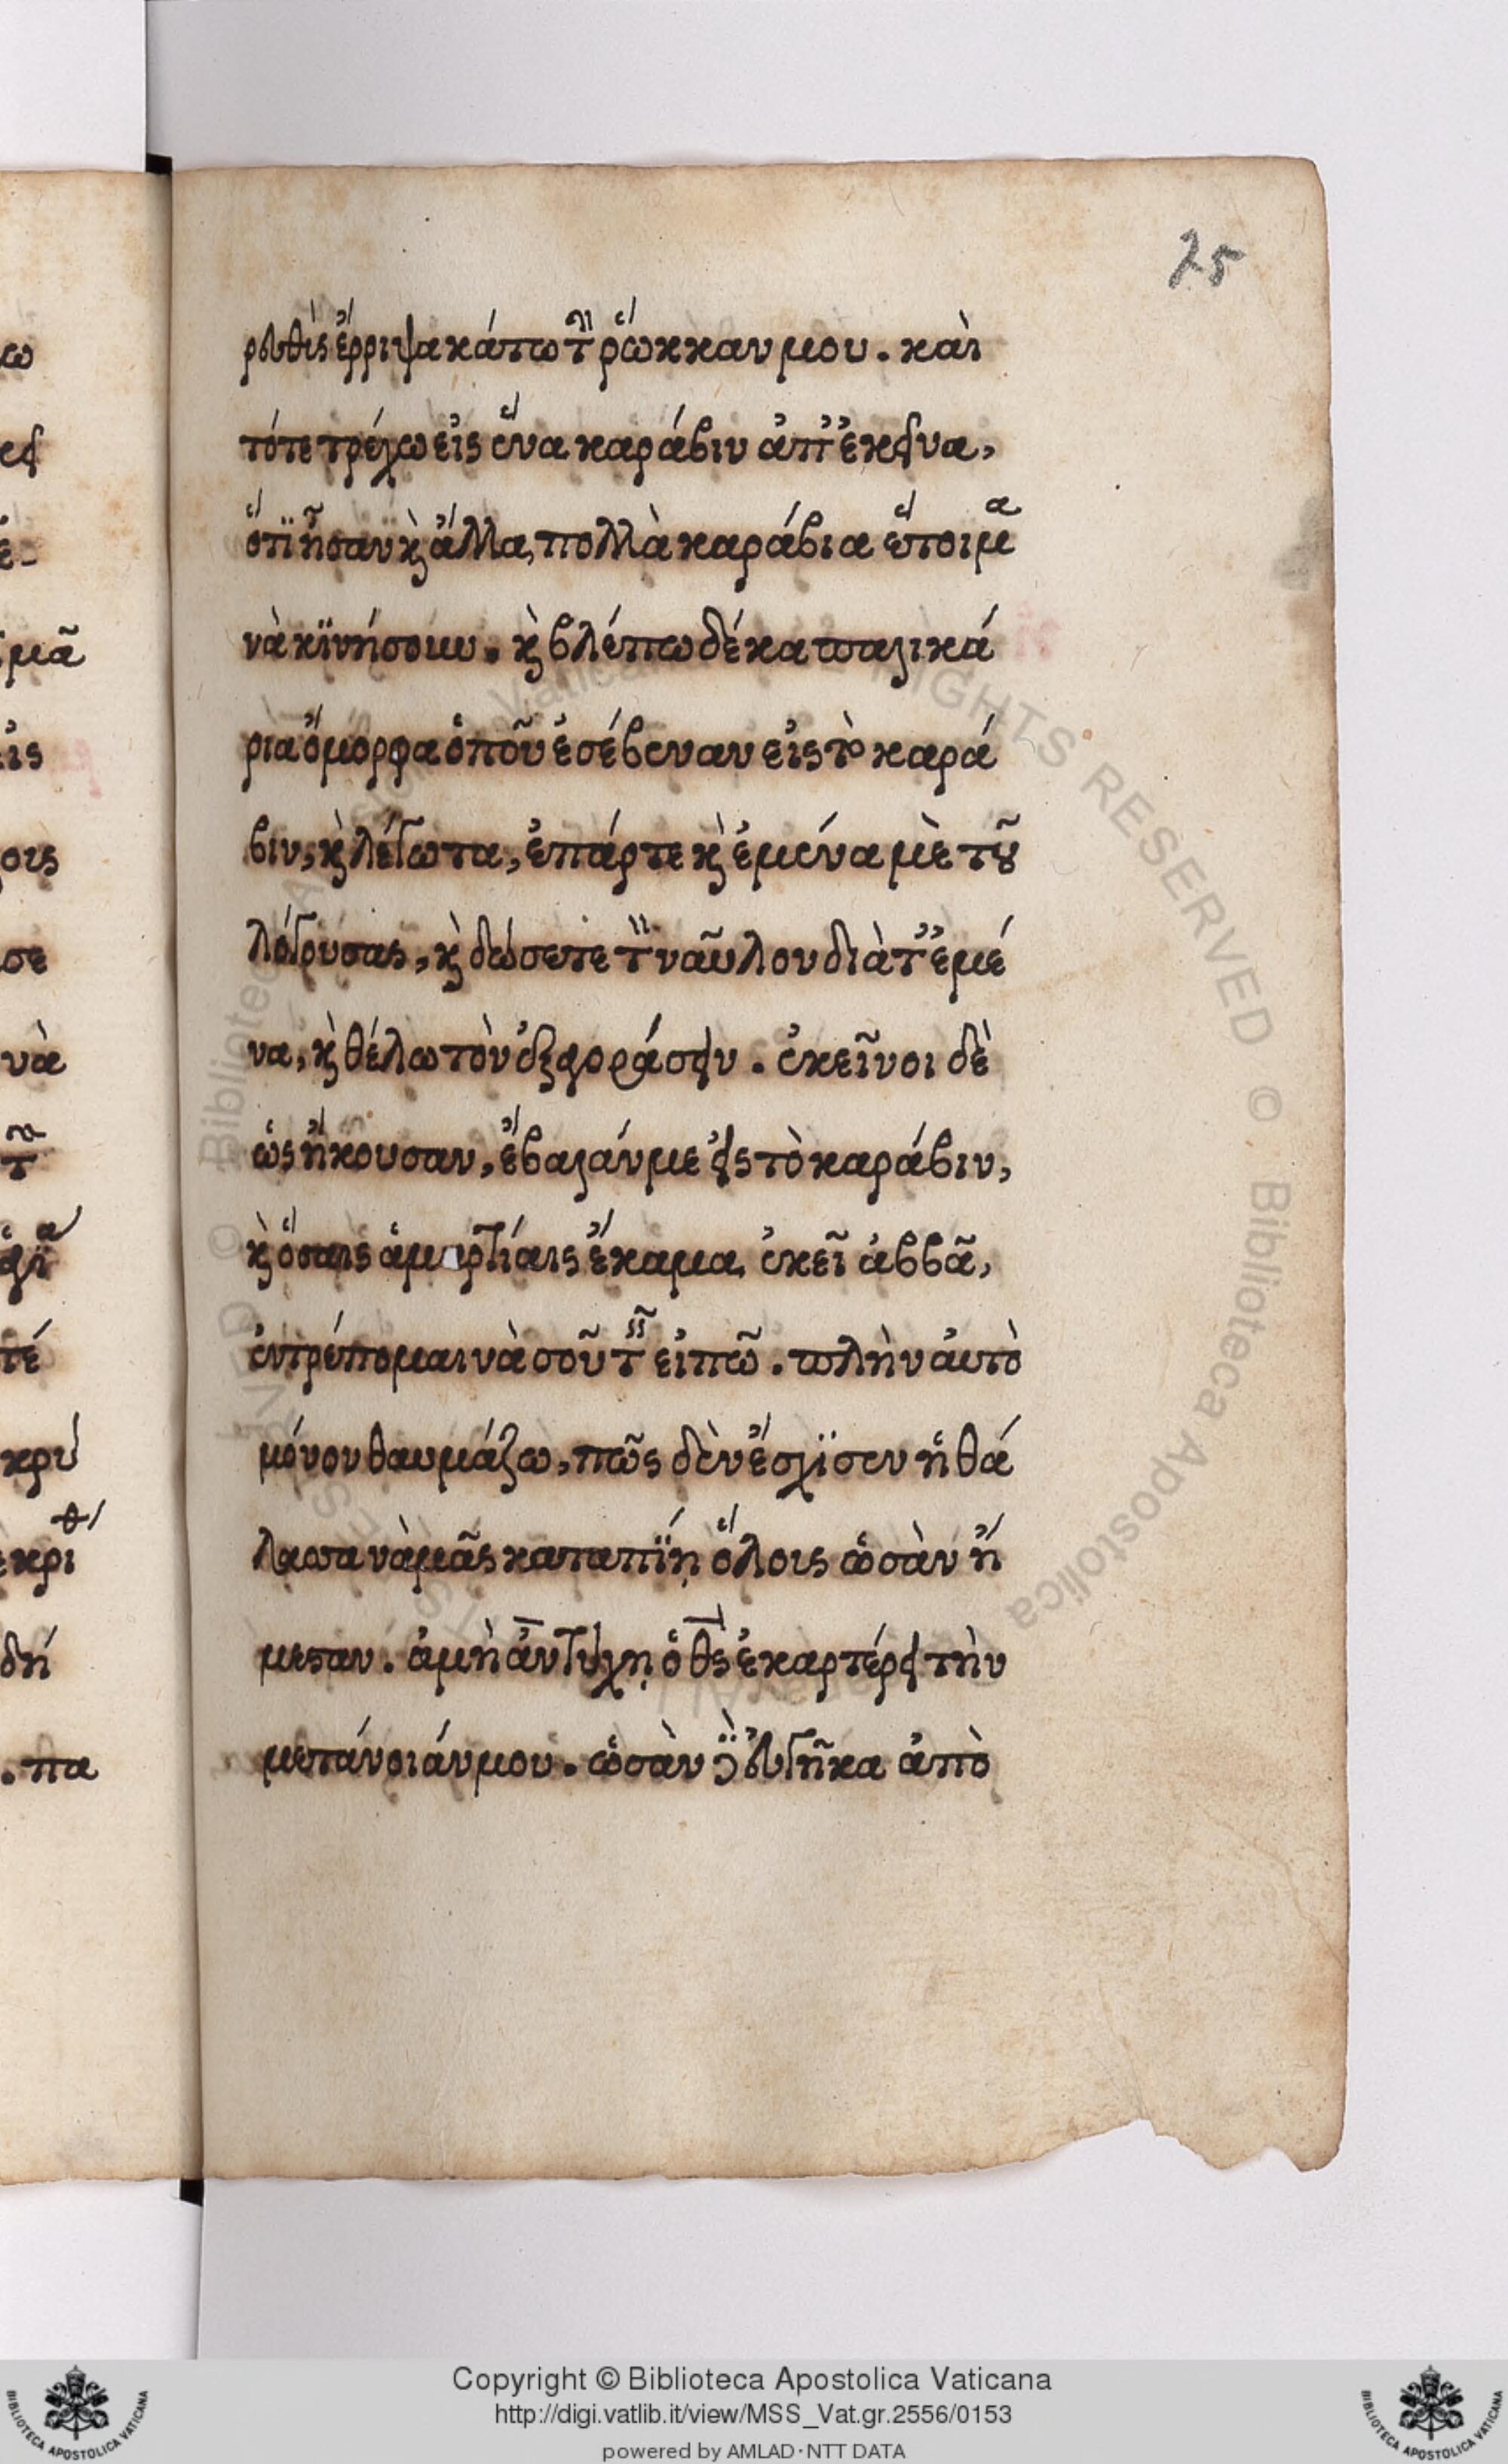 25
ρευθὶς ἔρριψα κάτω τὴν ῥόκκαν μου. καὶ
τότε τρέχω εἰς ἕνα καράβιν ἀπ' ἐκεῖνα,
ὅτι ἦσαν κ̀ ἄλλα πολλὰ καράβια ἕτοιμα
νὰ κϊνήσουν. κ̀ βλέπω δέκα παλικά
ρια ὄμορφα ὁποῦ ἐσέβεναν εἰς τὸ καρά
βιν, κ̀ λέγω τα, ἐπάρτε κ̀ ἐμένα μὲ τοῦ
λόγου σας, κ̀ δώσετε τὸν ναῦλον διὰ τ' ἐμέ
να, κ̀ θέλω τὸν ἐξαγοράσειν. ἐκεῖνοι δὲ
ὡς ἤκουσαν, ἔβαλάν με εἰς τὸ καράβιν,
κ̀ ὅσαις ἁμαρτίαις ἔκαμα ἐκεῖ ἀββᾶ,
ἐντρέπομαι νὰ σοῦ τὲς εἰπῶ. πλὴν αὐτὸ
μόνον θαυμάζω, πῶς δὲν ἔσχϊσεν ἡ θά
λασσα νὰ μᾶς καταπϊῄ ὅλοις ὡσὰν ἤ
μεσταν. ἀμὴ ἂν τύχῃ ὁ θς ἐκαρτέρει τὴν
μετάνοιάν μου. ὡσὰν εὐγῆκα ἀπὸ
Copyright © Biblioteca Apostolica Vaticana
http://digi.vatlib.it/view/MSS_Vat.gr.2556/0153
powered by AMLAD·NTT DATA